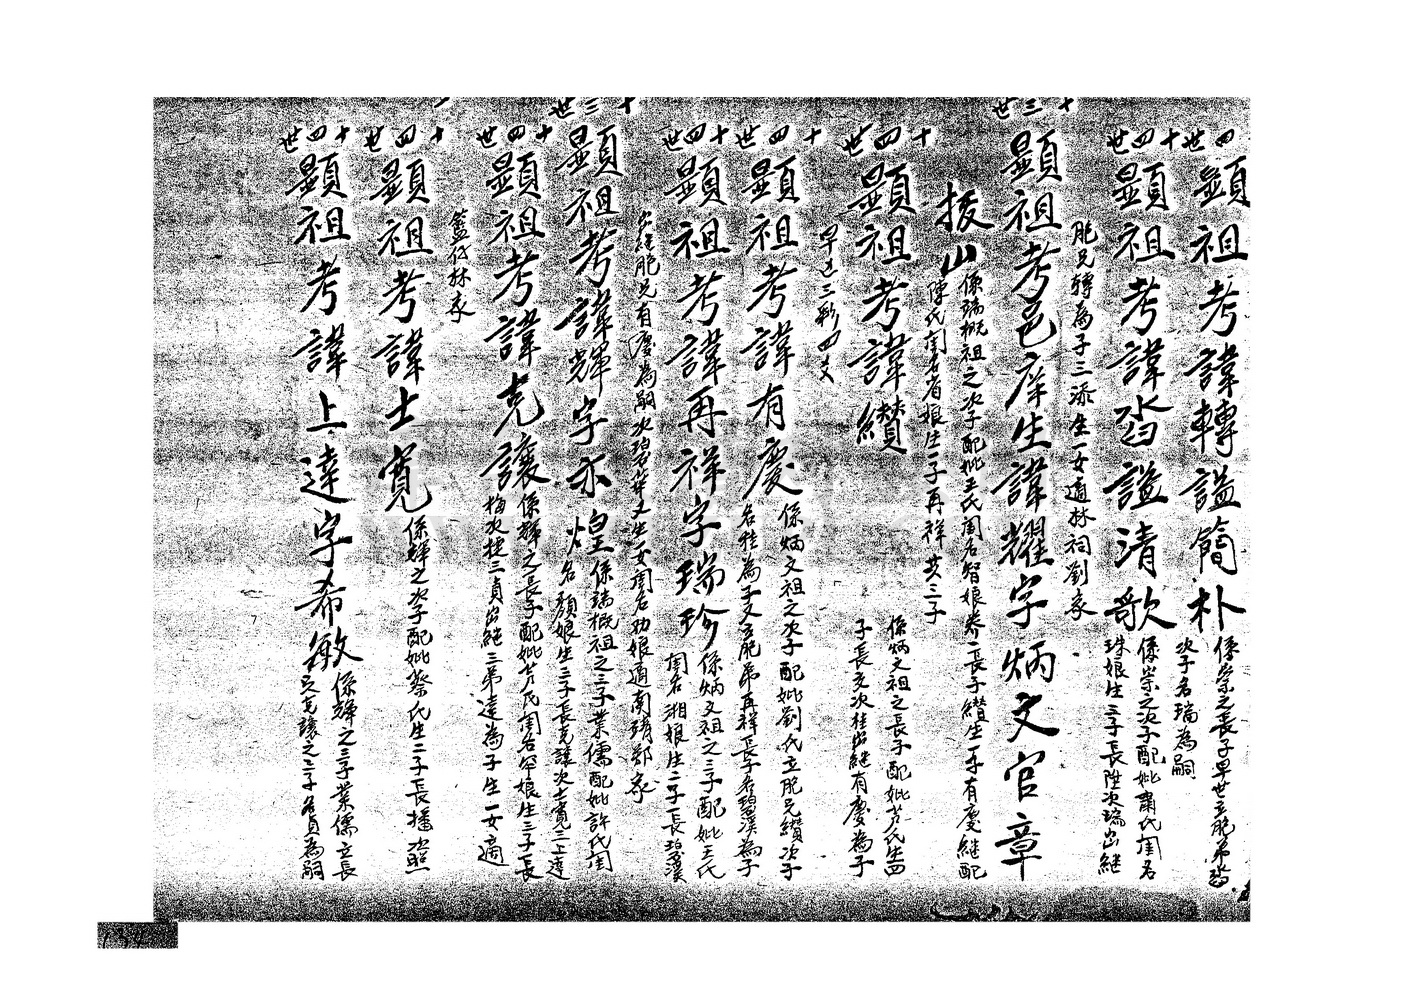 十四世
顯祖考諱轉謚簡朴
係崇之長子早世立胞弟沓
次子名瑞為嗣
十四世
顯祖考諱沓謚清歌
係崇之次子配妣肅氏閨名
珠娘生三子長陞次瑞出継
胞兄轉為子三添生一女適林祠劉家
十三世
顯祖考邑庠生諱耀字炳文官章
拔山
係瑞概祖之次子配妣王氏閨名智娘養一長子纘生一子有慶継配
陳氏閨名看娘生一子再祥 共三子
十四世
顯祖考諱纘
係炳文祖之長子配妣芒氏生四
子長交次桂出継有慶為子
早亡三彩四文
十四世
顯祖考諱有慶
係炳文祖之次子配妣劉氏立胞兄纘次子
名桂為子又立胞弟再祥長子名碧漢為子
十四世
顯祖考諱再祥字瑞珍
係炳文祖之三子配妣王氏
閨名湘娘生二子長碧漢
出継胞兄有慶為嗣次碧華又生一女閨名劝娘適南靖鄭家
十三世
顯祖考諱輝字亦煌
係瑞概祖之三子業儒配妣許氏閨
名顏娘生三子長克讓次士寬三上達
十四世
顯祖考諱克讓
係輝之長子配妣芒氏閨名罕娘生三子長
梅次捷三貞出継三弟達為子生一女適
籃仔林家
十四世
顯祖考諱士寬
係輝之次子配妣蔡氏生二子長播次照
十四世
顯祖考諱上達字希敏
係輝之三子業儒立長
兄克讓之三子名貞為嗣